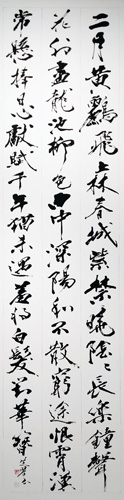 二月黃鸝飛上林春城紫禁曉陰〻長樂鐘聲
花外盡龍池柳色雨中深陽和不散窮途恨霄漢
常懸捧日心獻賦十年猶未遇羞將白髮對華簪